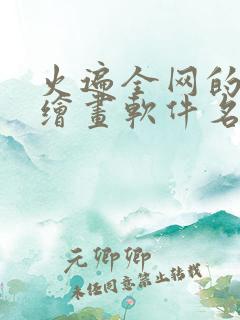 火遍全网的
繪畫軟件名
元卿卿
未经同意禁止转载